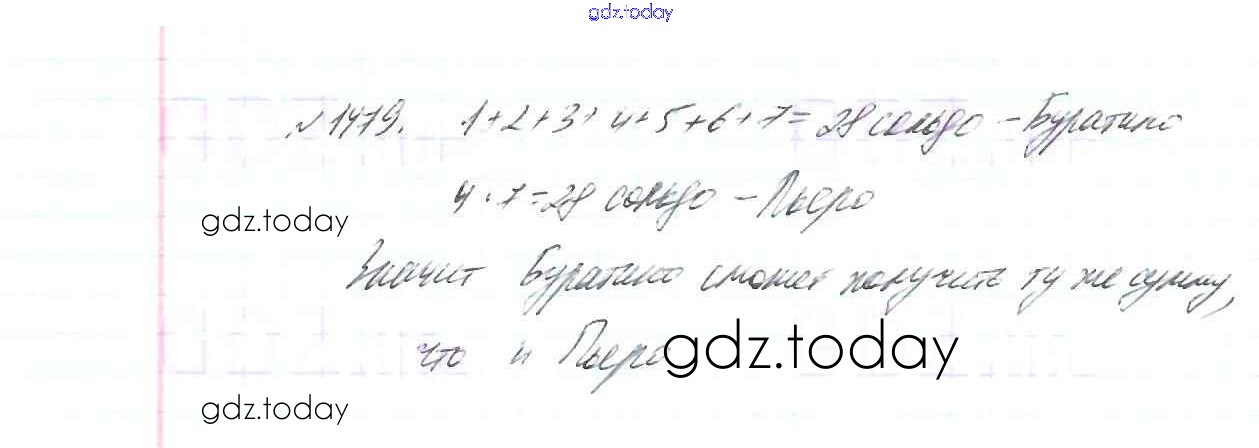 gdz.today
№1479. 1+2+3+4+5+6+7=28 сольдо - Буратино
4·7=28 сольдо - Пьеро
gdz.today
Значит Буратино сможет получить ту же сумму,
что и Пьеро
gdz.today
gdz.today